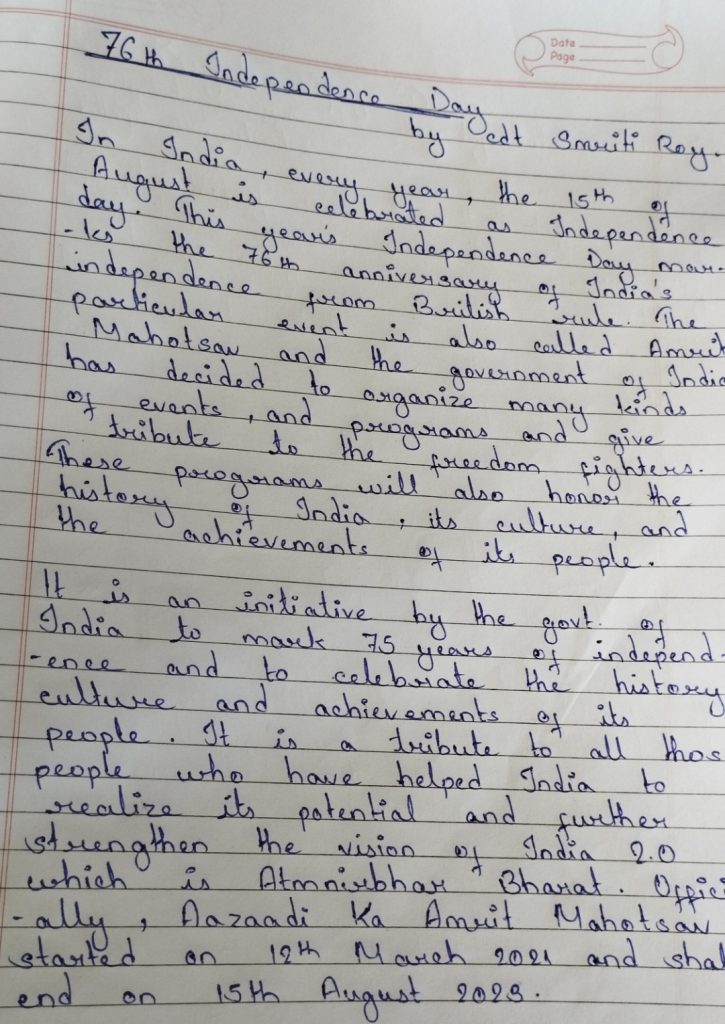 Date
Page
76th Independence Day
by cdt Smriti Roy.
In India, every year, the 15th of
August is celebrated as Independence
day. This year's Independence Day mar-
-ks the 76th anniversary of India's
independence from British rule. The
particular event is also called Amrit
Mahotsav and the government of India
has decided to organize many kinds
of events, and programs and give
tribute to the freedom fighters.
These programs will also honor the
history of India, its culture, and
the achievements of its people.
It is an initiative by the govt. of
India to mark 75 years of independ-
-ence and to celebrate the history
culture and achievements of its
people. It is a tribute to all thos
people who have helped India to
realize its potential and further
strengthen the vision of India 2.0
which is Atmnirbhar Bharat. Offici
-ally, Aazaadi Ka Amrit Mahotsav
started on 12th March 2021 and shal
end on 15th August 2023.